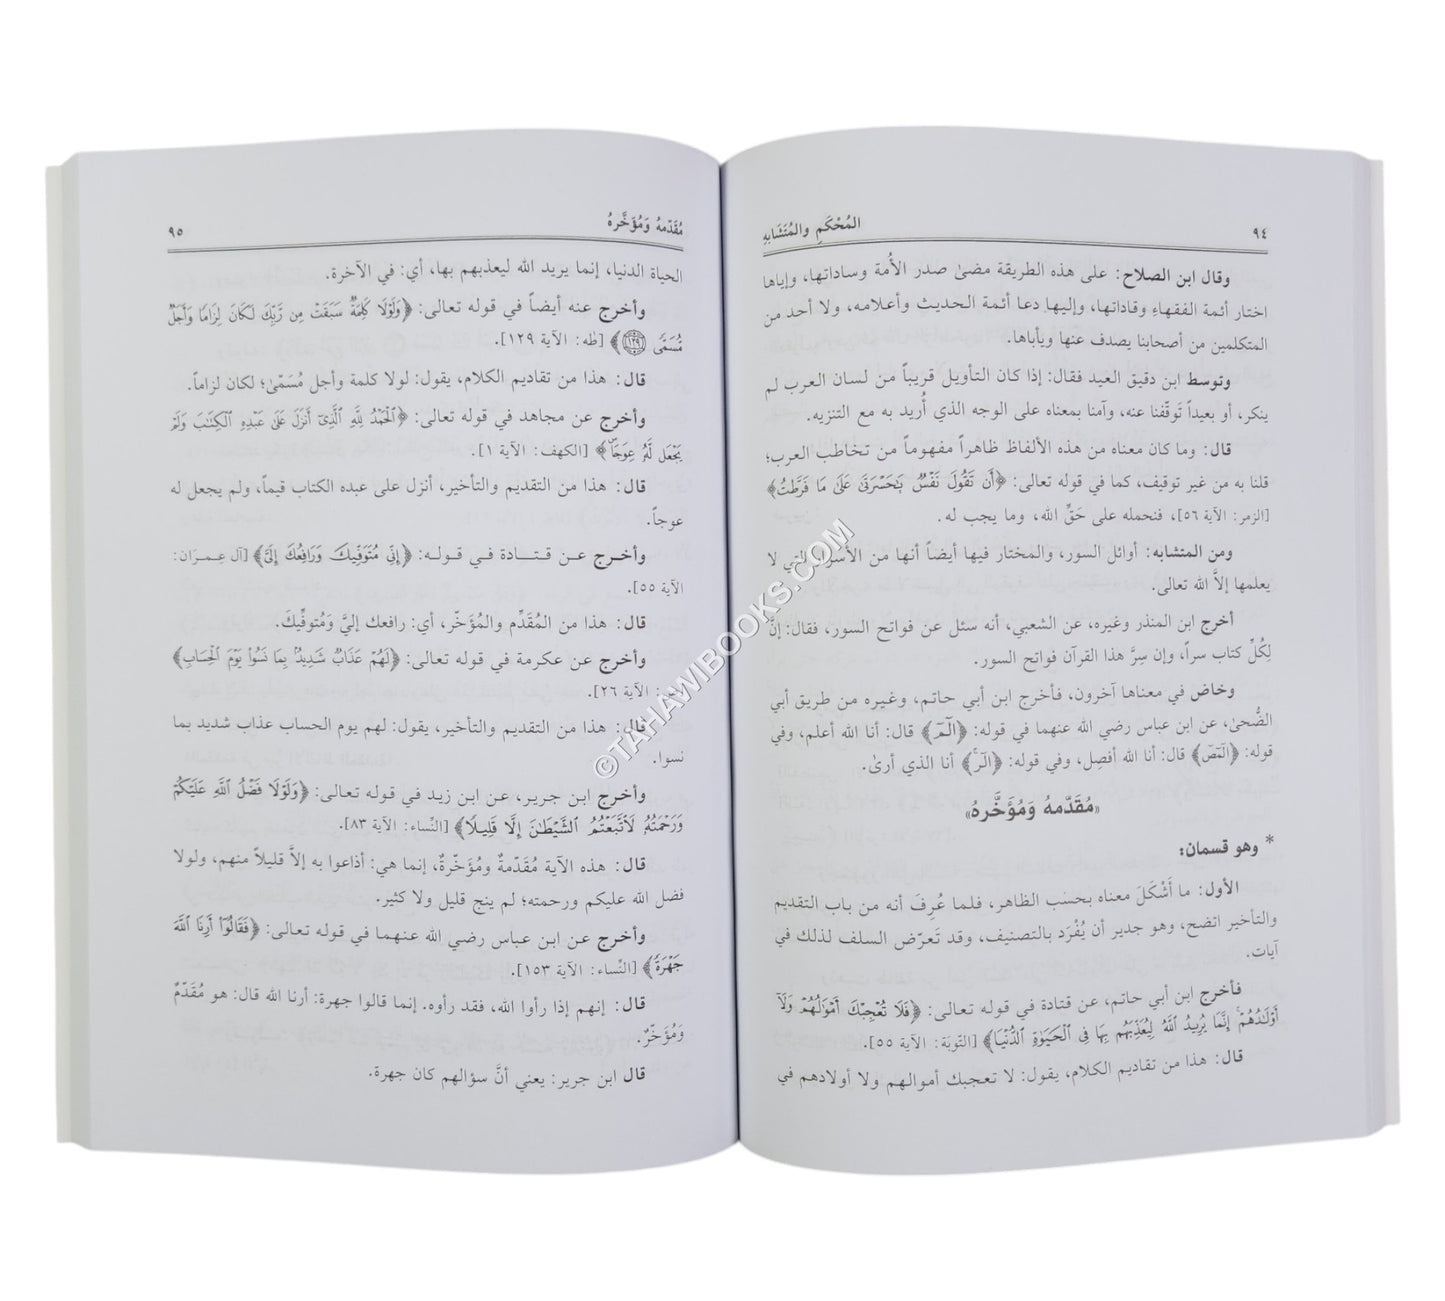 ٩٤ المُحْكَمِ والمُتَشَابِهِ
وقال ابن الصلاح: على هذه الطريقة مضىٰ صدر الأُمة وساداتها، وإياها
اختار أئمة الفقهاءِ وقاداتها، وإليها دعا أئمة الحديث وأعلامه، ولا أحد من
المتكلمين من أصحابنا يصدف عنها ويأباها.
وتوسط ابن دقيق العيد فقال: إذا كان التأويل قريباً من لسان العرب لم
ينكر، أو بعيداً تَوقّفنا عنه، وآمنا بمعناه على الوجه الذي أُريد به مع التنزيه.
قال: وما كان معناه من هذه الألفاظ ظاهراً مفهوماً من تخاطب العرب؛
قلنا به من غير توقيف، كما في قوله تعالى: ﴿أَن تَقُولَ نَفْسٌ يَٰحَسْرَتَىٰ عَلَىٰ مَا فَرَّطتُ﴾
[الزمر: الآية ٥٦]، فنحمله على حَقِّ الله، وما يجب له.
ومن المتشابه: أوائل السور، والمختار فيها أيضاً أنها من الأسرار التي لا
يعلمها إلاَّ الله تعالى.
أخرج ابن المنذر وغيره، عن الشعبي، أنه سئل عن فواتح السور، فقال: إنَّ
لِكُلِّ كتاب سراً، وإن سِرَّ هذا القرآن فواتح السور.
وخاض في معناها آخرون، فأخرج ابن أبي حاتم، وغيره من طريق أبي
الضُّحىٰ، عن ابن عباس رضي الله عنهما في قوله: ﴿الٓمٓ﴾ قال: أنا الله أعلم، وفي
قوله: ﴿الٓمٓصٓ﴾ قال: أنا الله أفصِل، وفي قوله: ﴿الٓرٰ﴾ أنا الذي أرىٰ.
«مُقَدَّمهُ وَمُؤَخَّره»
* وهو قسمان:
الأول: ما أَشْكَلَ معناه بحسب الظاهر، فلما عُرِفَ أنه من باب التقديم
والتأخير اتضح، وهو جدير أن يُفْرَد بالتصنيف، وقد تَعرّض السلف لذلك في
آيات.
فأخرج ابن أبي حاتم، عن قتادة في قوله تعالى: ﴿فَلَا تُعْجِبْكَ أَمْوَٰلُهُمْ وَلَآ
أَوْلَٰدُهُمْ ۚ إِنَّمَا يُرِيدُ ٱللَّهُ لِيُعَذِّبَهُم بِهَا فِى ٱلْحَيَوٰةِ ٱلدُّنْيَا﴾ [التّوبَة: الآية ٥٥].
قال: هذا من تقاديم الكلام، يقول: لا تعجبك أموالهم ولا أولادهم في
مُقَدّمهُ وَمُؤَخَّرهُ ٩٥
الحياة الدنيا، إنما يريد الله ليعذبهم بها، أي: في الآخرة.
وأخرج عنه أيضاً في قوله تعالى: ﴿وَلَوْلَا كَلِمَةٌ سَبَقَتْ مِن رَّبِّكَ لَكَانَ لِزَامًا وَأَجَلٌ
مُّسَمًّى ١٢٩﴾ [طه: الآية ١٢٩].
قال: هذا من تقاديم الكلام، يقول: لولا كلمة وأجل مُسَمّىٰ؛ لكان لزاماً.
وأخرج عن مجاهد في قوله تعالى: ﴿ٱلْحَمْدُ لِلَّهِ ٱلَّذِىٓ أَنزَلَ عَلَىٰ عَبْدِهِ ٱلْكِتَٰبَ وَلَمْ
يَجْعَل لَّهُۥ عِوَجَا﴾ [الكهف: الآية ١].
قال: هذا من التقديم والتأخير، أنزل على عبده الكتاب قيماً، ولم يجعل له
عوجاً.
وأخرج عن قتادة في قوله: ﴿إِنِّى مُتَوَفِّيكَ وَرَافِعُكَ إِلَىَّ﴾ [آل عِمرَان:
الآية ٥٥].
قال: هذا من المُقَدِّم والمُؤَخّر، أي: رافعك إليَّ وَمُتوفِّيكَ.
وأخرج عن عكرمة في قوله تعالى: ﴿لَهُمْ عَذَابٌ شَدِيدٌۢ بِمَا نَسُوا۟ يَوْمَ ٱلْحِسَابِ﴾
[ص: الآية ٢٦].
قال: هذا من التقديم والتأخير، يقول: لهم يوم الحساب عذاب شديد بما
نسوا.
وأخرج ابن جرير، عن ابن زيد في قوله تعالى: ﴿وَلَوْلَا فَضْلُ ٱللَّهِ عَلَيْكُمْ
وَرَحْمَتُهُۥ لَٱتَّبَعْتُمُ ٱلشَّيْطَٰنَ إِلَّا قَلِيلًا﴾ [النِّساء: الآية ٨٣].
قال: هذه الآية مُقَدّمةٌ ومُؤَخّرةٌ، إنما هي: أذاعوا به إلاَّ قليلاً منهم، ولولا
فضل الله عليكم ورحمته؛ لم ينج قليل ولا كثير.
وأخرج عن ابن عباس رضي الله عنهما في قوله تعالى: ﴿فَقَالُوٓا۟ أَرِنَا ٱللَّهَ
جَهْرَةً﴾ [النِّساء: الآية ١٥٣].
قال: إنهم إذا رأوا الله، فقد رأوه. إنما قالوا جهرة: أرنا الله قال: هو مُقَدّمٌ
وَمُؤَخّرٌ.
قال ابن جرير: يعني أنَّ سؤالهم كان جهرة.
©TAHAWIBOOKS.COM